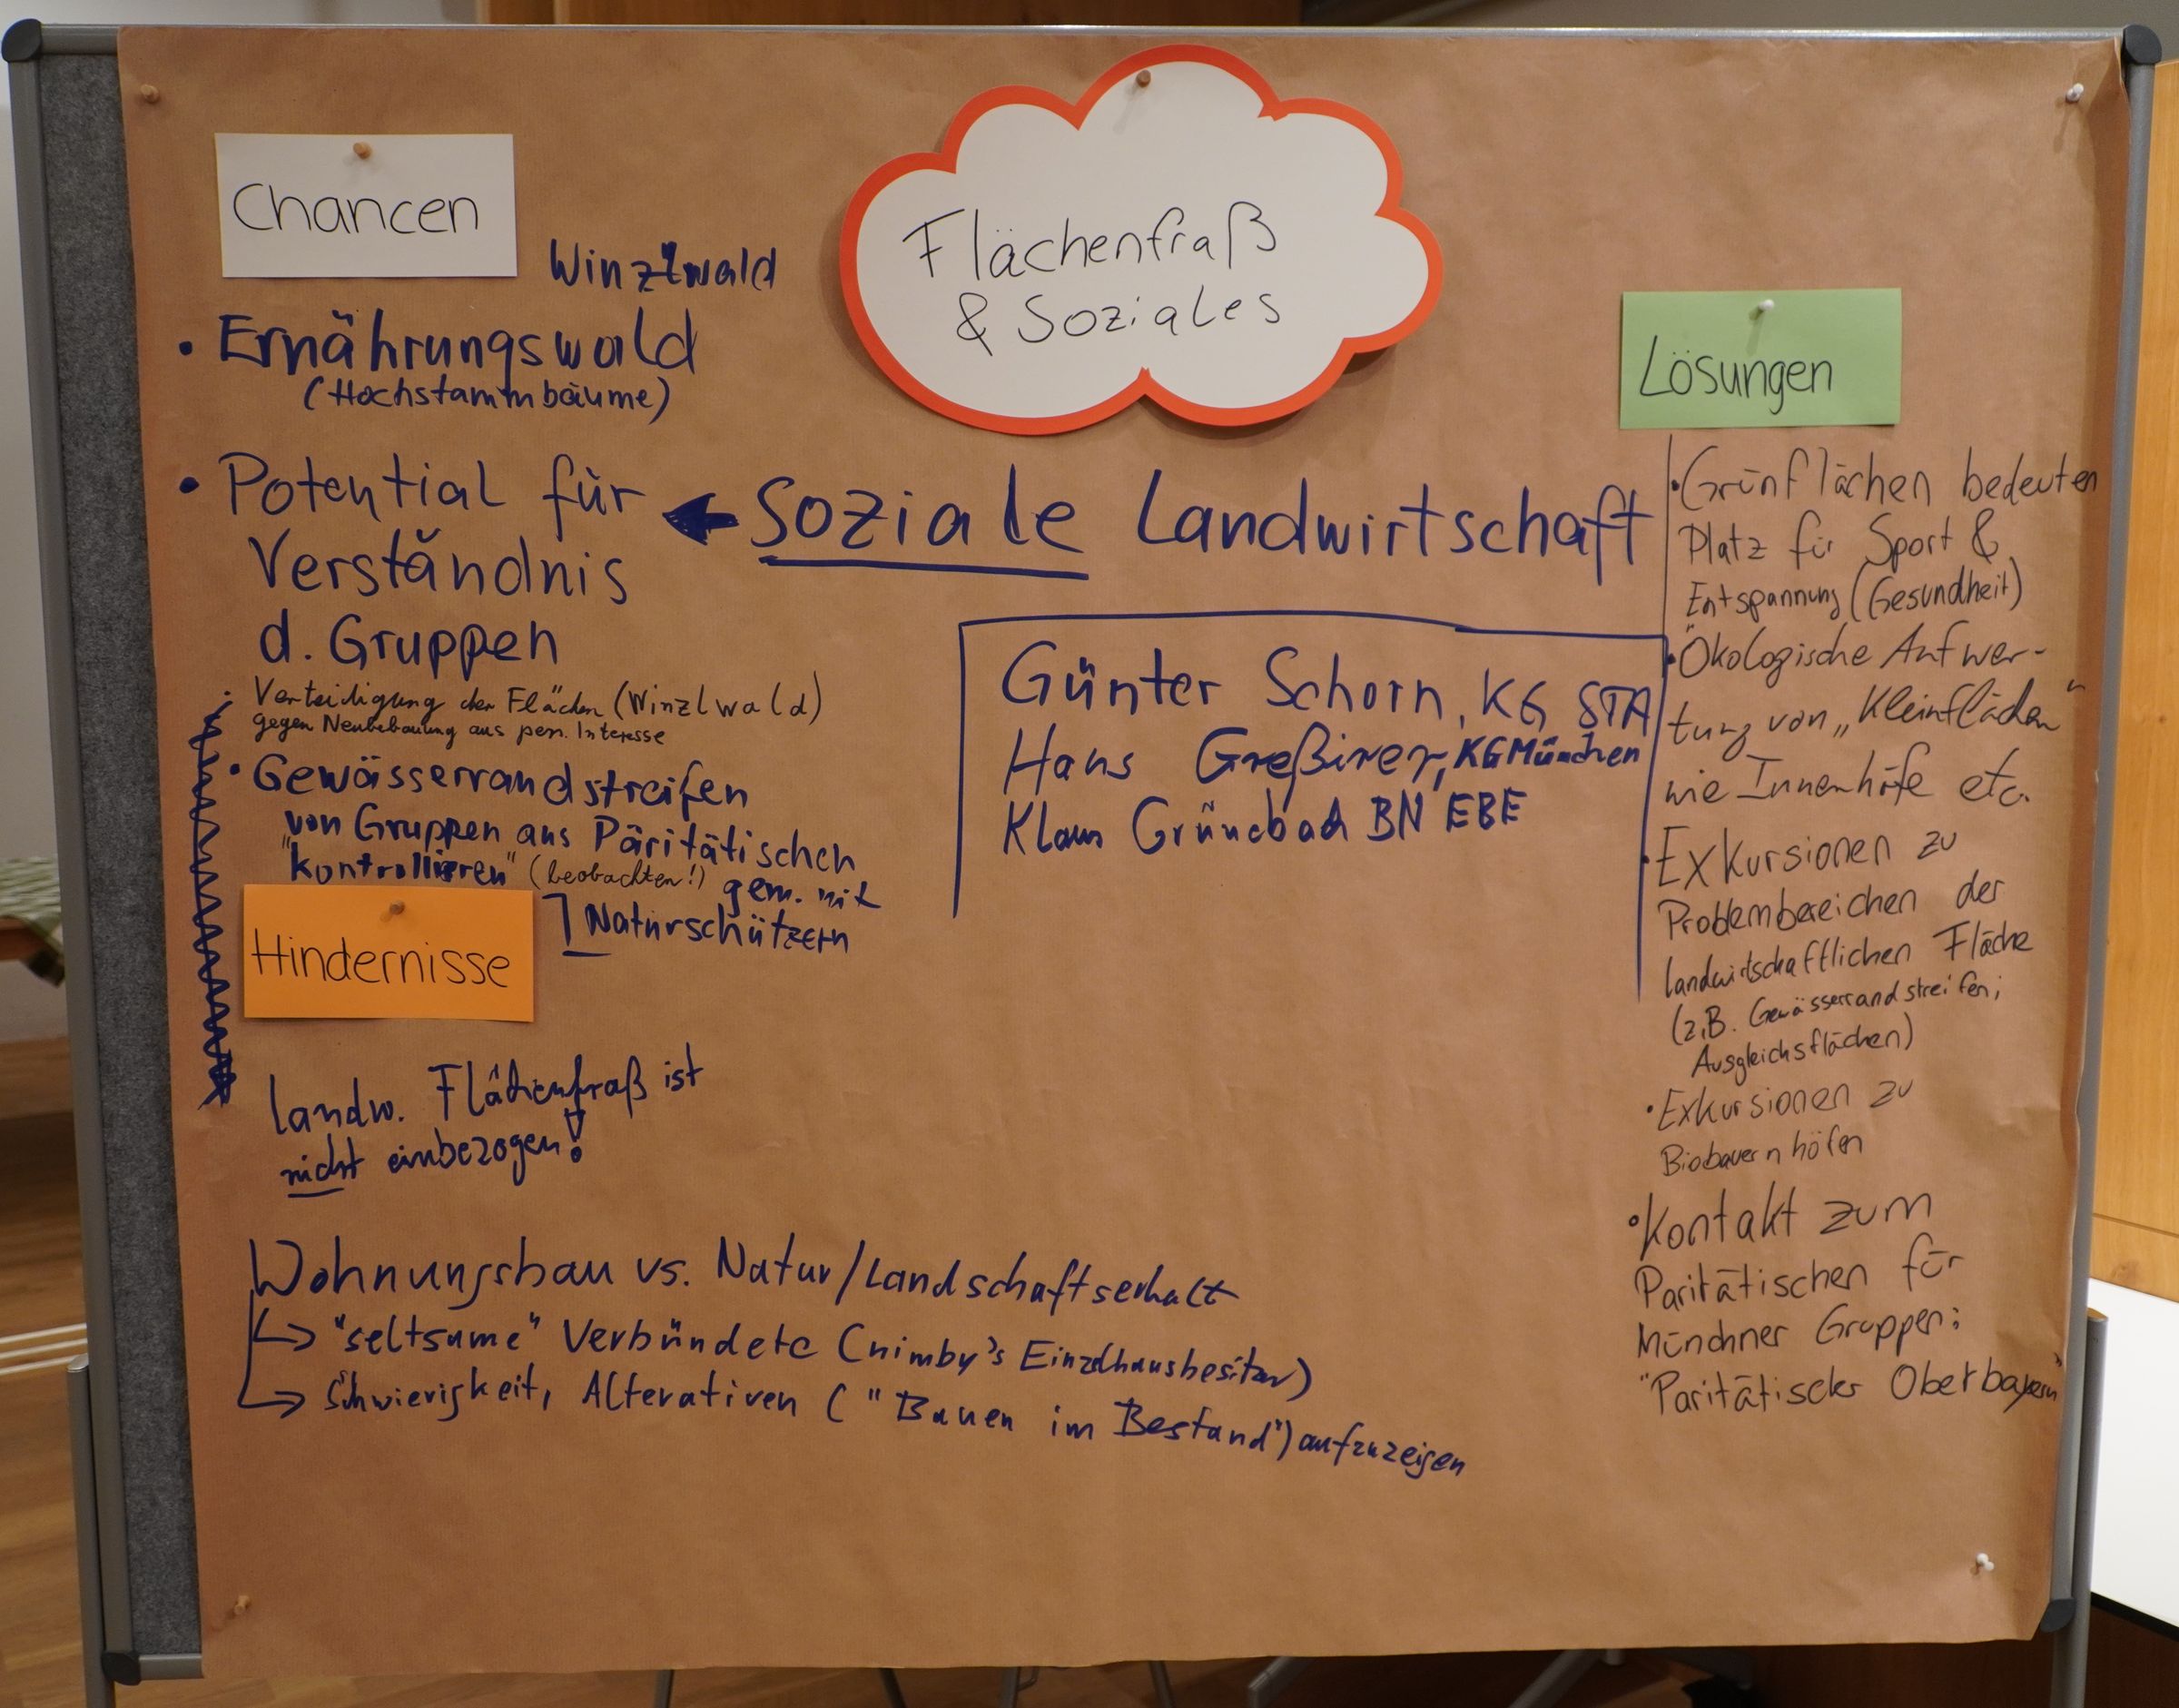 Flächenfraß
& Soziales
Chancen
Winzlwald
• Ernährungswald
(Hochstammbäume)
• Potential für
Verständnis
d. Gruppen
← Soziale Landwirtschaft
• Verteidigung der Flächen (Winzlwald)
gegen Neubebauung aus pers. Interesse
• Gewässerrandstreifen
von Gruppen aus Päritätischen
"kontrollieren" (beobachten!) gem. mit
Naturschützern
Günter Schorn, KG STA
Hans KG München
Klaus BN EBE
Hindernisse
landw. Flächenfraß ist
nicht einbezogen!
Wohnungsbau vs. Natur/Landschaftserhalt
↳ "seltsame" Verbündete (nimby's Einzelhausbesitzer)
↳ Schwierigkeit, Alterativen ("Bauen im Bestand") aufzuzeigen
Lösungen
• Grünflächen bedeuten
Platz für Sport &
Entspannung (Gesundheit)
• Ökologische Aufwer-
tung von „Kleinflächen“
wie Innenhöfe etc.
• Exkursionen zu
Problembereichen der
landwirtschaftlichen Fläche
(z.B. Gewässerrandstreifen;
Ausgleichsflächen)
• Exkursionen zu
Biobauernhöfen
• Kontakt zum
Paritätischen für
Münchner Gruppen:
"Paritätischer Oberbayern"